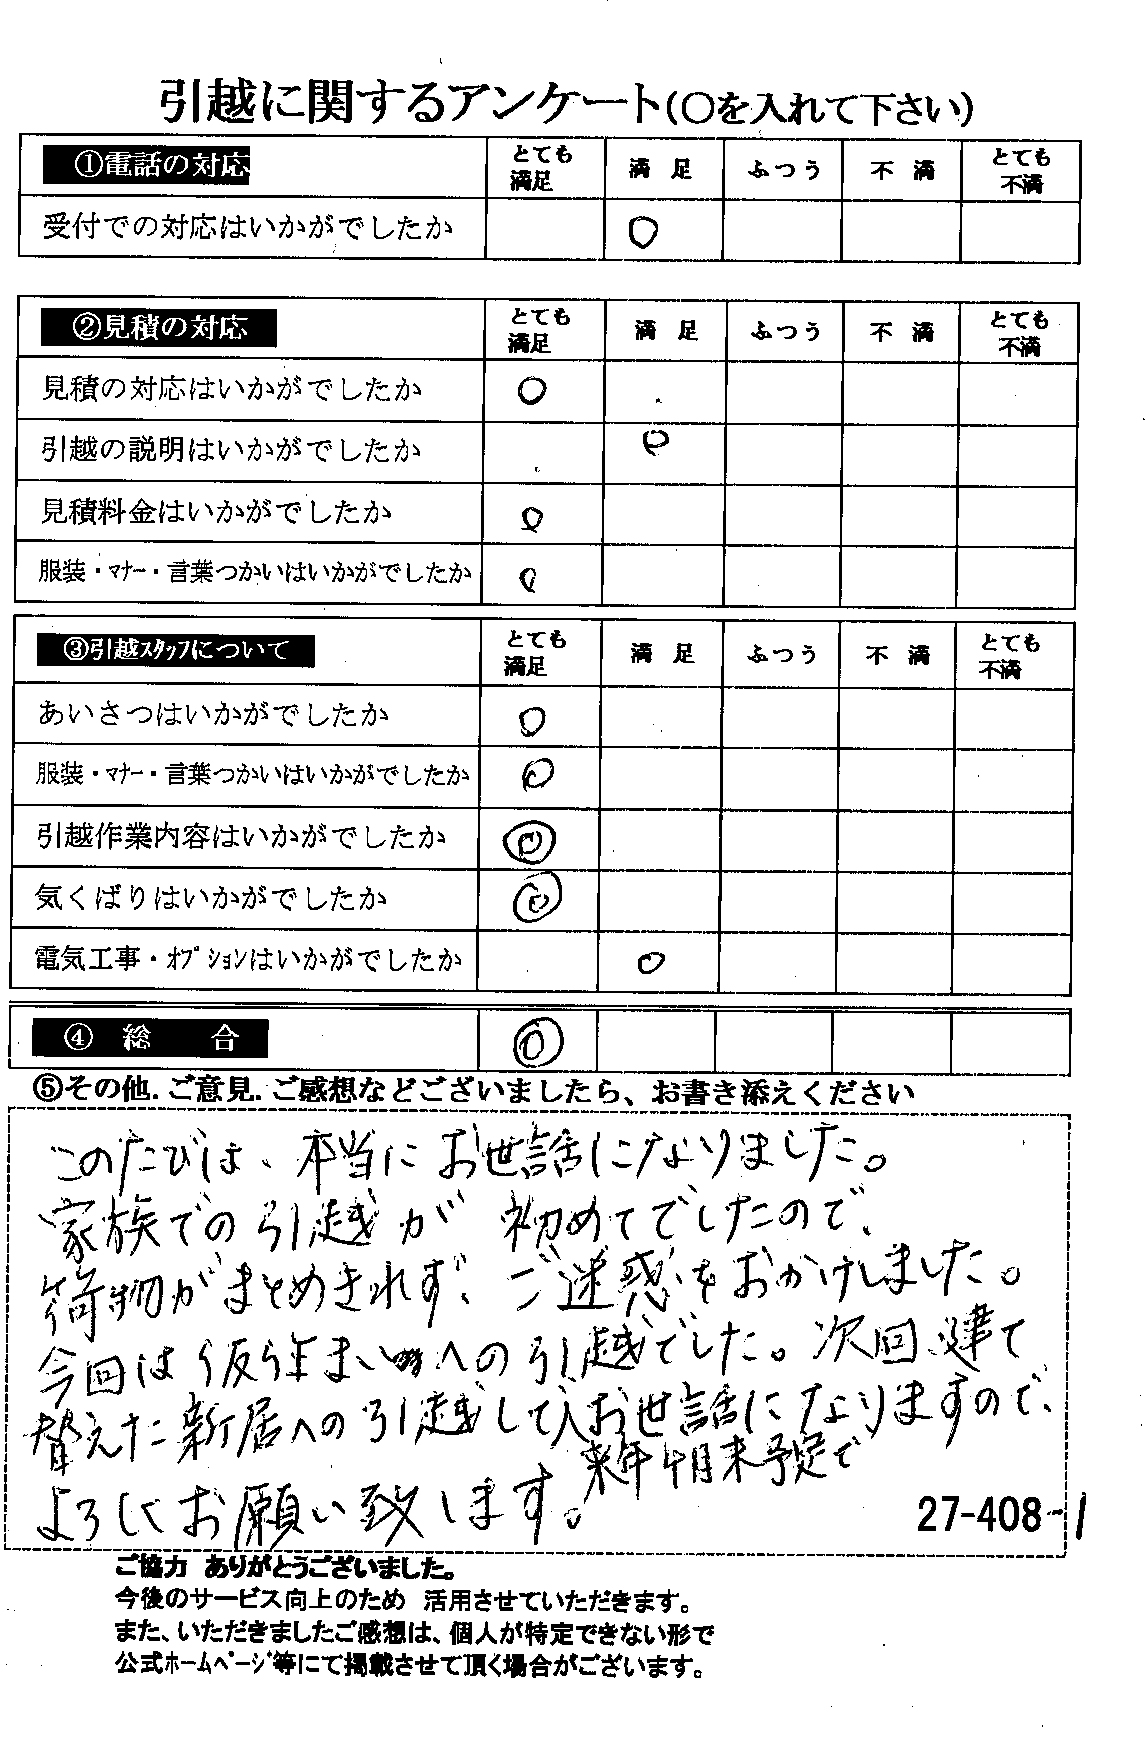 引越に関するアンケート(〇を入れて下さい)
①電話の対応 とても満足 満足 ふつう 不満 とても不満
受付での対応はいかがでしたか ○
②見積の対応 とても満足 満足 ふつう 不満 とても不満
見積の対応はいかがでしたか ○
引越の説明はいかがでしたか ○
見積料金はいかがでしたか ○
服装・ﾏﾅｰ・言葉つかいはいかがでしたか ○
③引越ｽﾀｯﾌについて とても満足 満足 ふつう 不満 とても不満
あいさつはいかがでしたか ○
服装・ﾏﾅｰ・言葉つかいはいかがでしたか ○
引越作業内容はいかがでしたか ◎
気くばりはいかがでしたか ◎
電気工事・ｵﾌﾟｼｮﾝはいかがでしたか ○
④ 総合 ◎
⑤その他.ご意見.ご感想などございましたら、お書き添えください
このたびは、本当にお世話になりました。
家族での引越が初めてでしたので、
荷物がまとめきれず、ご迷惑をおかけしました。
今回は仮住まいへの引越でした。次回、建て
替えた新居への引越しで、お世話になりますので、
来年4月末予定で
よろしくお願い致します。
27-408-1
ご協力 ありがとうございました。
今後のサービス向上のため 活用させていただきます。
また、いただきましたご感想は、個人が特定できない形で
公式ﾎｰﾑﾍﾟｰｼﾞ等にて掲載させて頂く場合がございます。